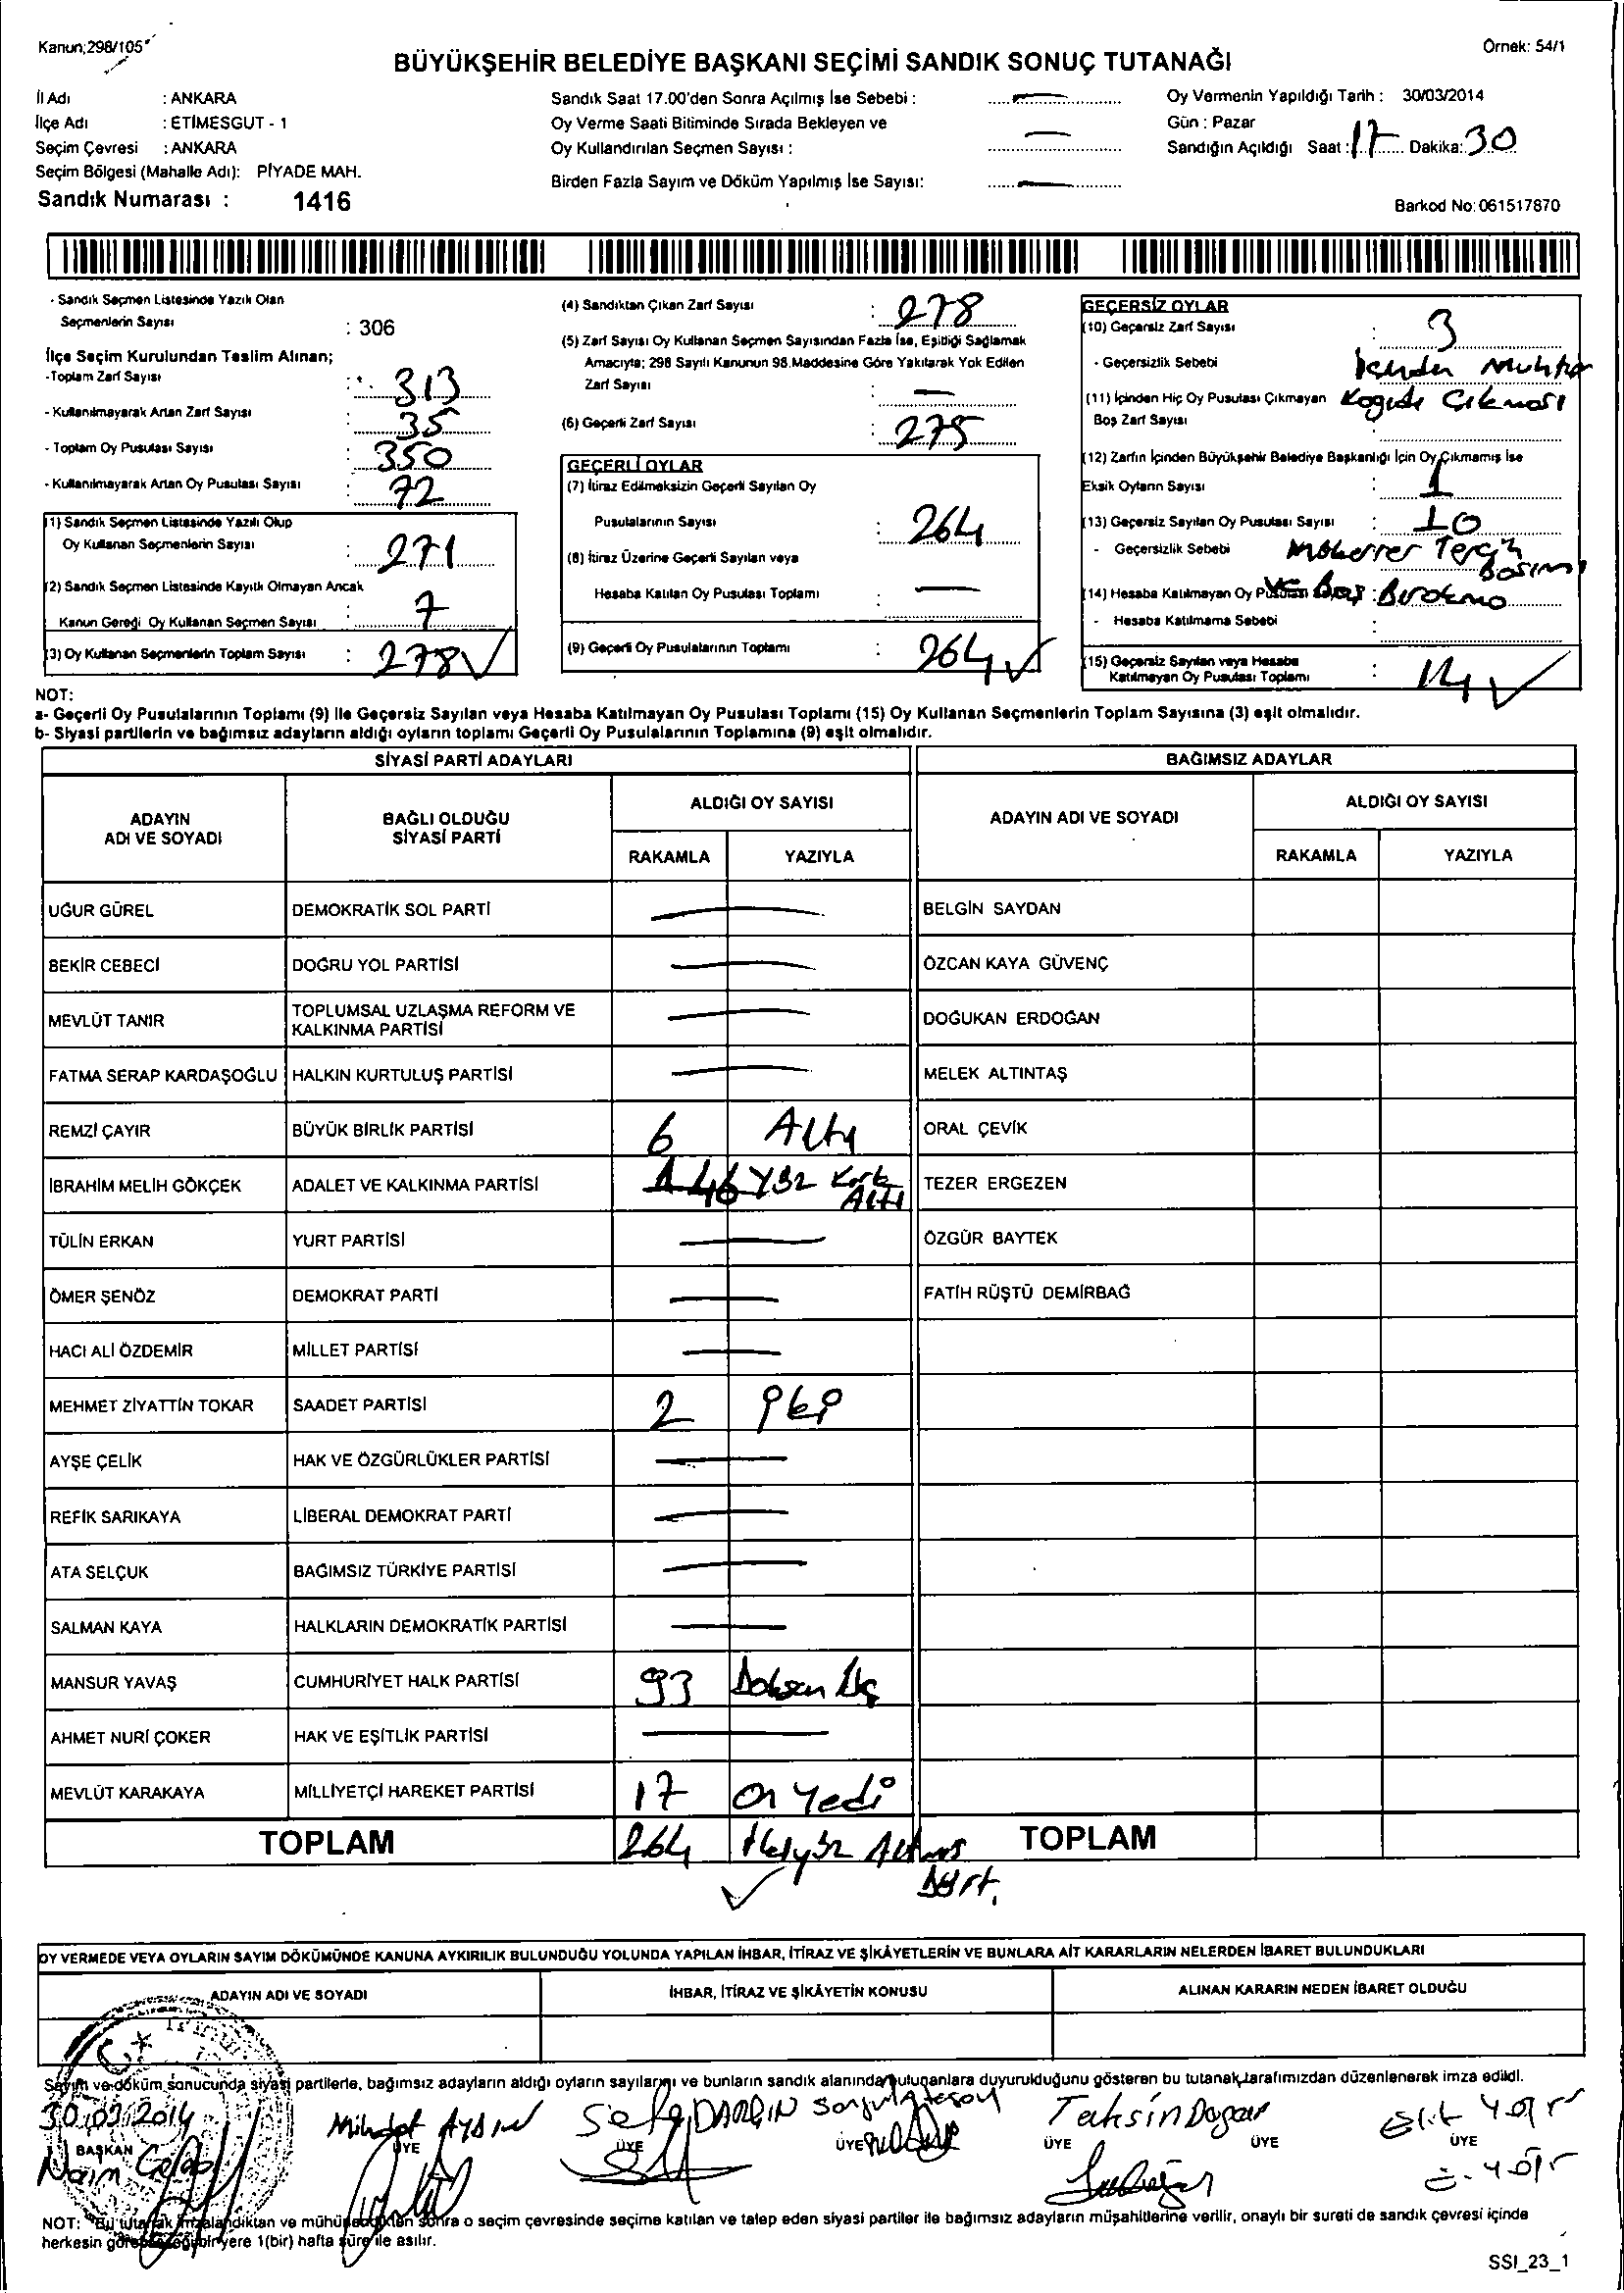 Kanun;298/105
Örnek: 54/1
BÜYÜKŞEHİR BELEDİYE BAŞKANI SEÇİMİ SANDIK SONUÇ TUTANAĞI
İl Adı : ANKARA
İlçe Adı : ETİMESGUT - 1
Seçim Çevresi : ANKARA
Seçim Bölgesi (Mahalle Adı): PİYADE MAH.
Sandık Numarası : 1416
Sandık Saat 17.00'den Sonra Açılmış İse Sebebi : —
Oy Verme Saati Bitiminde Sırada Bekleyen ve
Oy Kullandırılan Seçmen Sayısı : —
Birden Fazla Sayım ve Döküm Yapılmış İse Sayısı: —
Oy Vermenin Yapıldığı Tarih : 30/03/2014
Gün : Pazar
Sandığın Açıldığı Saat : 17 Dakika: 30
Barkod No: 061517870
- Sandık Seçmen Listesinde Yazılı Olan
Seçmenlerin Sayısı : 306
İlçe Seçim Kurulundan Teslim Alınan;
-Toplam Zarf Sayısı : 313
- Kullanılmayarak Artan Zarf Sayısı : 35
- Toplam Oy Pusulası Sayısı : 350
- Kullanılmayarak Artan Oy Pusulası Sayısı : 72
(1) Sandık Seçmen Listesinde Yazılı Olup
Oy Kullanan Seçmenlerin Sayısı : 271
(2) Sandık Seçmen Listesinde Kayıtlı Olmayan Ancak
Kanun Gereği Oy Kullanan Seçmen Sayısı : 7
(3) Oy Kullanan Seçmenlerin Toplam Sayısı : 278 ✓
(4) Sandıktan Çıkan Zarf Sayısı : 278
(5) Zarf Sayısı Oy Kullanan Seçmen Sayısından Fazla İse, Eşitliği Sağlamak
Amacıyla; 298 Sayılı Kanunun 98.Maddesine Göre Yakılarak Yok Edilen
Zarf Sayısı : —
(6) Geçerli Zarf Sayısı : 275
GEÇERLİ OYLAR
(7) İtiraz Edilmeksizin Geçerli Sayılan Oy
Pusulalarının Sayısı : 264
(8) İtiraz Üzerine Geçerli Sayılan veya
Hesaba Katılan Oy Pusulası Toplamı : —
(9) Geçerli Oy Pusulalarının Toplamı : 264 ✓
GEÇERSİZ OYLAR
(10) Geçersiz Zarf Sayısı : 3
- Geçersizlik Sebebi : İçinden Muhtar
(11) İçinden Hiç Oy Pusulası Çıkmayan Kağıdı Çıkması
Boş Zarf Sayısı :
(12) Zarfın İçinden Büyükşehir Belediye Başkanlığı İçin Oy Çıkmamış İse
Eksik Oyların Sayısı : 1
(13) Geçersiz Sayılan Oy Pusulası Sayısı : 10
- Geçersizlik Sebebi Mükerrer Tercih
Basımı
(14) Hesaba Katılmayan Oy Pusulası : ve Boş Bırakma
- Hesaba Katılmama Sebebi :
(15) Geçersiz Sayılan veya Hesaba
Katılmayan Oy Pusulası Toplamı : 14 ✓
NOT:
a- Geçerli Oy Pusulalarının Toplamı (9) İle Geçersiz Sayılan veya Hesaba Katılmayan Oy Pusulası Toplamı (15) Oy Kullanan Seçmenlerin Toplam Sayısına (3) eşit olmalıdır.
b- Siyasi partilerin ve bağımsız adayların aldığı oyların toplamı Geçerli Oy Pusulalarının Toplamına (9) eşit olmalıdır.
SİYASİ PARTİ ADAYLARI
BAĞIMSIZ ADAYLAR
ADAYIN
ADI VE SOYADI
BAĞLI OLDUĞU
SİYASİ PARTİ
ALDIĞI OY SAYISI
RAKAMLA YAZIYLA
ADAYIN ADI VE SOYADI
ALDIĞI OY SAYISI
RAKAMLA YAZIYLA
UĞUR GÜREL DEMOKRATİK SOL PARTİ — BELGİN SAYDAN
BEKİR CEBECİ DOĞRU YOL PARTİSİ — ÖZCAN KAYA GÜVENÇ
MEVLÜT TANIR TOPLUMSAL UZLAŞMA REFORM VE
KALKINMA PARTİSİ — DOĞUKAN ERDOĞAN
FATMA SERAP KARDAŞOĞLU HALKIN KURTULUŞ PARTİSİ — MELEK ALTINTAŞ
REMZİ ÇAYIR BÜYÜK BİRLİK PARTİSİ 6 Altı ORAL ÇEVİK
İBRAHİM MELİH GÖKÇEK ADALET VE KALKINMA PARTİSİ 146 Yüz Kırk
Altı TEZER ERGEZEN
TÜLİN ERKAN YURT PARTİSİ — ÖZGÜR BAYTEK
ÖMER ŞENÖZ DEMOKRAT PARTİ — FATİH RÜŞTÜ DEMİRBAĞ
HACI ALİ ÖZDEMİR MİLLET PARTİSİ —
MEHMET ZİYATTİN TOKAR SAADET PARTİSİ 2 İki
AYŞE ÇELİK HAK VE ÖZGÜRLÜKLER PARTİSİ —
REFİK SARIKAYA LİBERAL DEMOKRAT PARTİ —
ATA SELÇUK BAĞIMSIZ TÜRKİYE PARTİSİ —
SALMAN KAYA HALKLARIN DEMOKRATİK PARTİSİ —
MANSUR YAVAŞ CUMHURİYET HALK PARTİSİ 93 Doksan Üç
AHMET NURİ ÇOKER HAK VE EŞİTLİK PARTİSİ —
MEVLÜT KARAKAYA MİLLİYETÇİ HAREKET PARTİSİ 17 On Yedi
TOPLAM 264 İkiyüz Altmış TOPLAM
✓ Dört.
OY VERMEDE VEYA OYLARIN SAYIM DÖKÜMÜNDE KANUNA AYKIRILIK BULUNDUĞU YOLUNDA YAPILAN İHBAR, İTİRAZ VE ŞİKÂYETLERİN VE BUNLARA AİT KARARLARIN NELERDEN İBARET BULUNDUKLARI
ADAYIN ADI VE SOYADI
İHBAR, İTİRAZ VE ŞİKÂYETİN KONUSU
ALINAN KARARIN NEDEN İBARET OLDUĞU
Sayım ve döküm sonucunda siyasi partilerle, bağımsız adayların aldığı oyların sayılarını ve bunların sandık alanında bulunanlara duyurulduğunu gösteren bu tutanak tarafımızdan düzenlenerek imza edildi.
30/03/2014
BAŞKAN ÜYE ÜYE ÜYE ÜYE ÜYE ÜYE
Naim
Mithat AYDIN
Sefa DARGIN
Tahsin Doğar
NOT: Bu tutanak imzalandıktan ve mühürlendikten sonra o seçim çevresinde seçime katılan ve talep eden siyasi partiler ile bağımsız adayların müşahitlerine verilir, onaylı bir sureti de sandık çevresi içinde
herkesin görebileceği bir yere 1(bir) hafta süre ile asılır.
SSI_23_1